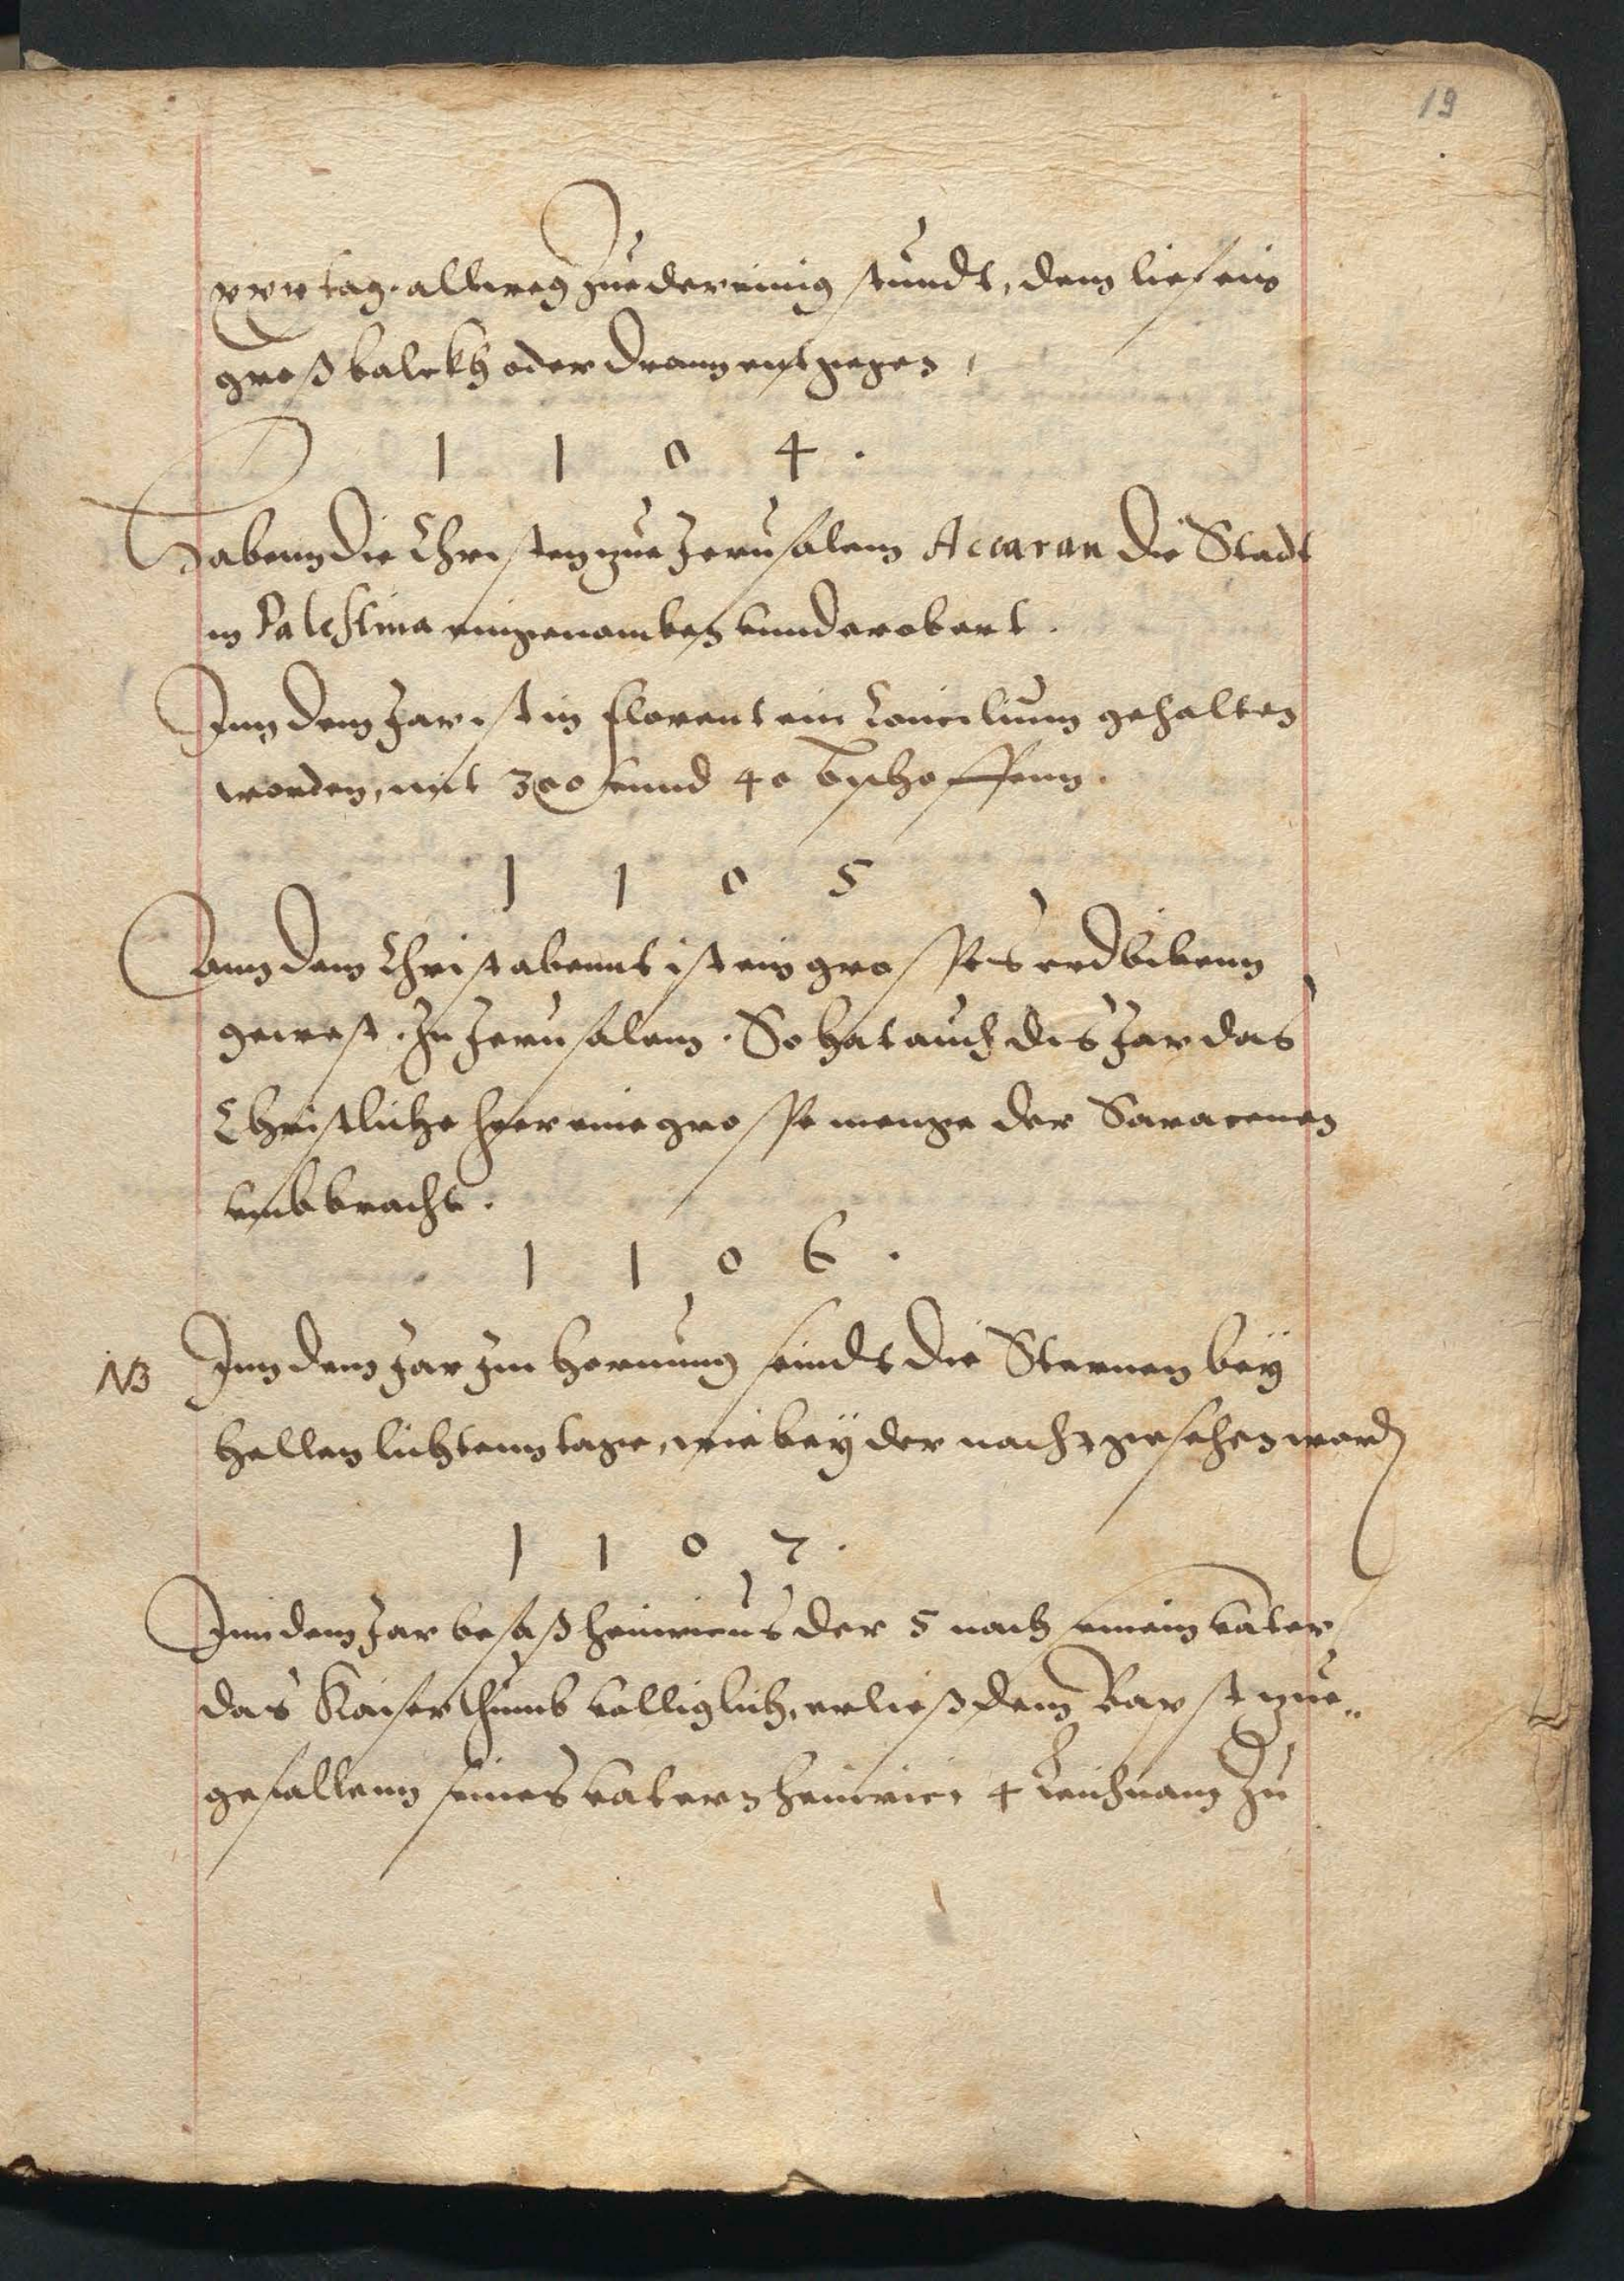 19
xxv tag. allweg zue der einig stundt, dem lief ein
groß balckh oder Dram entgegen,
1 1 0 4.
Habenn die Christen zue Jerusalem Accaran die Stadt
in Palestina eingenomben vnnd erobert.
Inn dem Jar ist in florentz ein Concilium gehalten
worden, mit 300 vnnd 40 Bischoffenn.
1 1 0 5
Ann dem Christabennt ist ein grosses erdbibenn
gewest. Zu Jerusalem. So hat auch dis Jar das
Christliche heer eine grosse menge der Saracenen
vmbbracht.
1 1 0 6.
NB Inn dem Jar Im Hornung seindt die Sternen bey
hellen lichtenn tage, wie bey der nacht gesehen word
1 1 0 7.
Inn dem Jar besaß heinricus der 5 nach seinem vater
das Kaiserthumb volliglich, er ließ dem Bapst zue
gefallenn seines vatern heinrici 4 Leichnam zu